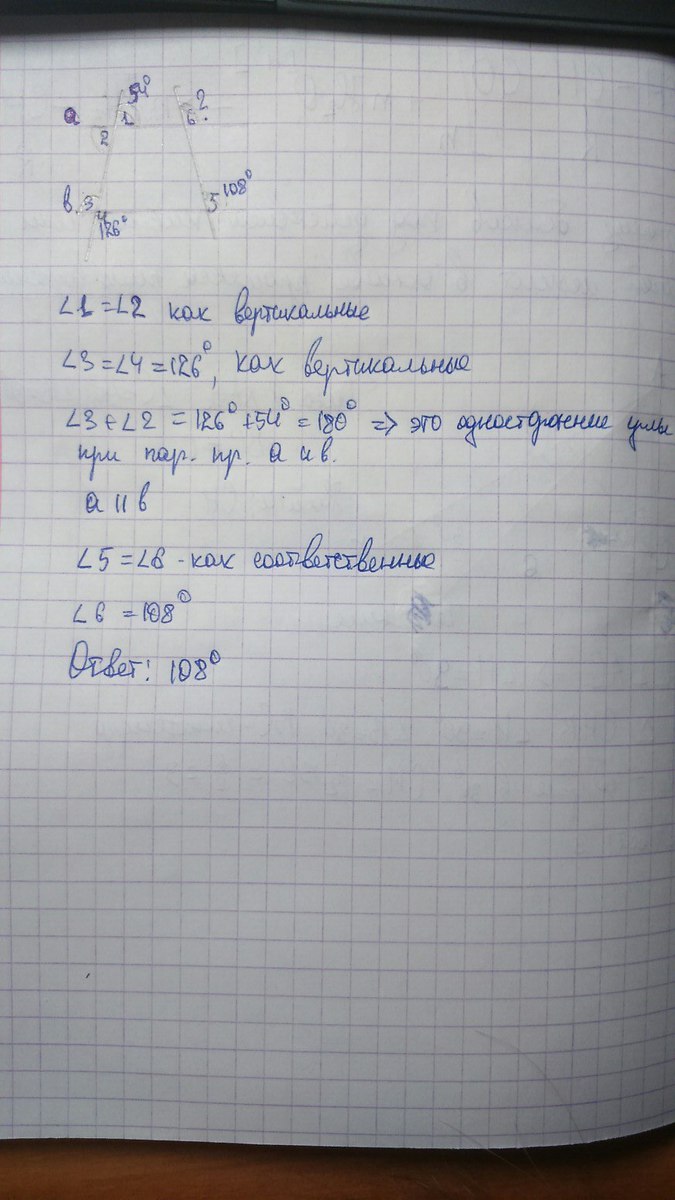 54°
2
а 1 6 ?
2
в 3 5 108°
4
126°
∠1 = ∠2 как вертикальные
∠3 = ∠4 = 126°, как вертикальные
∠3 + ∠2 = 126° + 54° = 180° => это односторонние углы
при пар. пр. а и в.
а || в
∠5 = ∠6 - как соответственные
∠6 = 108°
Ответ: 108°